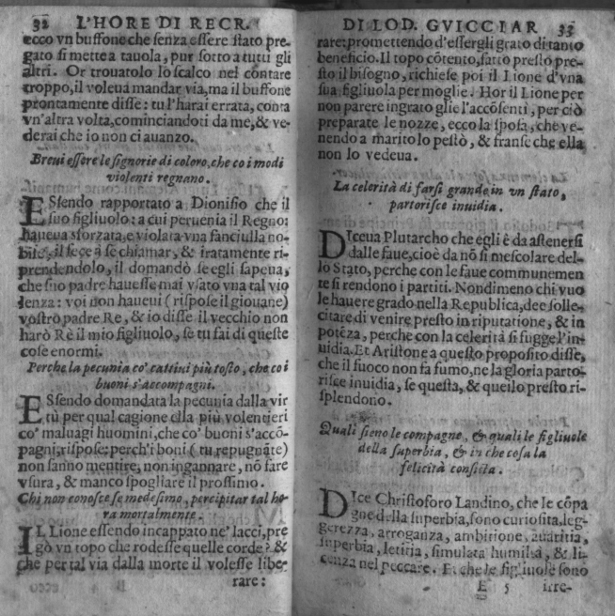 32 L'HORE DI RECR.
ecco vn buffone che senza essere stato pre-
gato si mette a tauola, pur sotto a tutti gli
altri. Or trouatolo lo scalco nel contare
troppo, il voleua mandar via, ma il buffone
prontamente disse: tu l'harai errata, conta
vn'altra volta, cominciandoti da me, & ve-
derai che io non ci auanzo.
Breui essere le signorie di coloro, che co i modi
violenti regnano.
ESsendo rapportato a Dionisio che il
suo figliuolo: a cui peruenia il Regno:
haueua sforzata, e violata vna fanciulla no-
bile, il fece a se chiamar, & iratamente ri-
prendendolo, il domandò se egli sapeua,
che suo padre hauesse mai vsato vna tal vio
lenza: voi non haueui (rispose il giouane)
vostro padre Re, & io disse il vecchio non
harò Rè il mio figliuolo, se tu fai di queste
cose enormi.
Perche la pecunia co' cattiui più tosto, che co i
buoni s'accompagni.
ESsendo domandata la pecunia dalla vir
tù per qual cagione ella più volentieri
co' maluagi huomini, che co' buoni s'accō-
pagni, rispose: perch'i boni (tu repugnāte)
non sanno mentire, non ingannare, nō fare
vsura, & manco spogliare il prossimo.
Chi non conosce se medesimo, percipitar tal ho
ra mortalmente.
IL Lione essendo incappato ne' lacci, pre
gò vn topo che rodesse quelle corde? &
che per tal via dalla morte il volesse libe
rare:
DI LOD. GVICCIAR 33
rare: promettendo d'essergli grato di tanto
beneficio. Il topo cōtento, fatto presto pre-
sto il bisogno, richiese poi il Lione d'vna
sua figliuola per moglie. Hor il Lione per
non parere ingrato glie l'accōsenti, per ciò
preparate le nozze, ecco la sposa, che ve-
nendo a marito lo pestò, & franse che ella
non lo vedeua.
La celerità di farsi grande in vn stato,
partorisce inuidia.
DIceua Plutarcho che egli è da astenersi
dalle faue, cioè da nō si mescolare del-
lo Stato, perche con le faue communemen
te si rendono i partiti. Nondimeno chi vuo
le hauere grado nella Republica, dee solle-
citare di venire presto in riputatione, & in
potēza, perche con la celerità si fugge l'in-
uidia. Et Aristone a questo proposito disse,
che il fuoco non fa fumo, ne la gloria parto-
risce inuidia, se questa, & quello presto ri-
splendono.
Quali sieno le compagne, & quali le figliuole
della superbia, & in che cosa la
felicità consista.
DIce Christoforo Landino, che le cōpa
gne della superbia, sono curiosità, leg-
gerezza, arroganza, ambitione, auaritia,
superbia, letitia, simulata humiltà, & li-
cenza nel peccare. Et che le figliuole sono
E 5 irre-